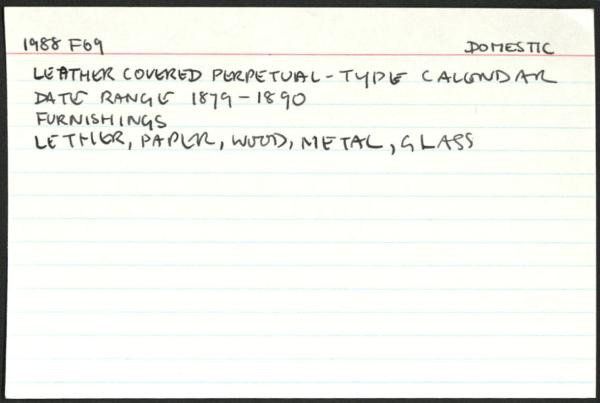 1988 F69 DOMESTIC
LEATHER COVERED PERPETUAL-TYPE CALENDAR
DATE RANGE 1879-1890
FURNISHINGS
LETHER, PAPER, WOOD, METAL, GLASS